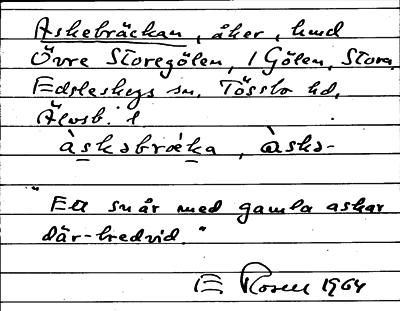 Askebräckan, åker, hmd
Övre Storegölen, 1 Gölen, Stora,
Edsleskogs sn. Tössbo hd,
Älvsb. l.
àskəbrǽka, àskə-
"Ett snår med gamla askar
där-bredvid."
E Rosell 1964